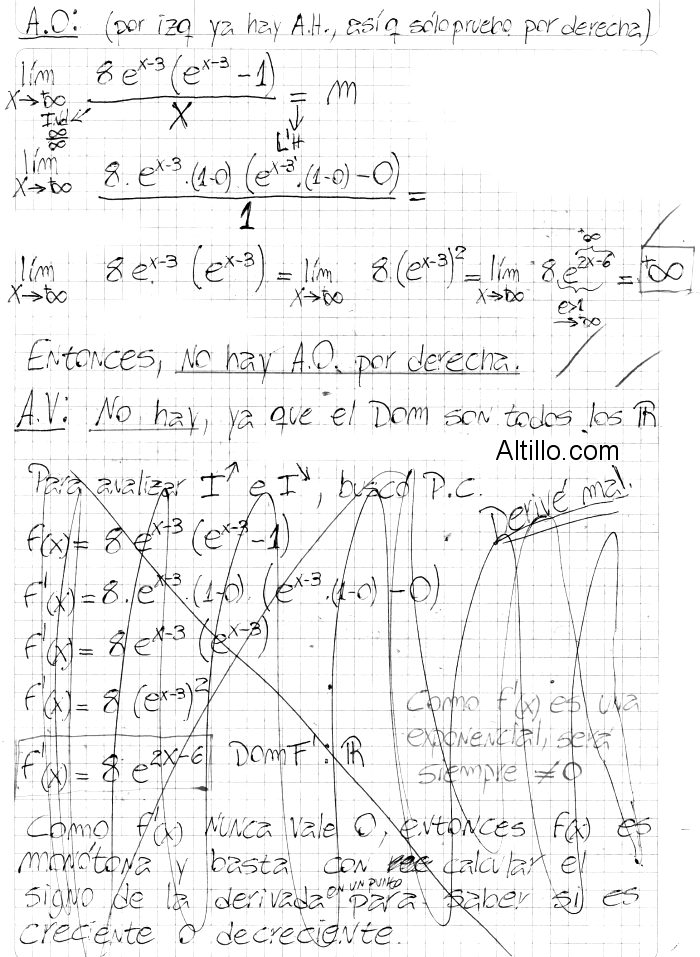 A.O: (por izq ya hay A.H., así q sólo pruebo por derecha)
lím x→+∞ 8e^(x-3) (e^(x-3) - 1) / x = m
Ind ∞/∞ L'H
lím x→+∞ 8·e^(x-3)·(1-0)·(e^(x-3)·(1-0) - 0) / 1 =
lím x→+∞ 8e^(x-3) (e^(x-3)) = lím x→+∞ 8·(e^(x-3))^2 = lím x→+∞ 8·e^(2x-6) = +∞
+∞
e>1
→+∞
Entonces, no hay A.O. por derecha.
A.V: No hay, ya que el Dom son todos los ℝ
Altillo.com
Para analizar I↗ e I↘, busco P.C.
Derivé mal.
f(x) = 8e^(x-3) (e^(x-3) - 1)
f'(x) = 8·e^(x-3)·(1-0)·(e^(x-3)·(1-0) - 0)
f'(x) = 8e^(x-3) (e^(x-3))
f'(x) = 8 (e^(x-3))^2
f'(x) = 8e^(2x-6) Dom F': ℝ
Como f'(x) es una
exponencial, será
siempre ≠ 0
Como f'(x) nunca vale 0, entonces f(x) es
monótona y basta con calcular el
signo de la derivada en un punto para saber si es
creciente o decreciente.